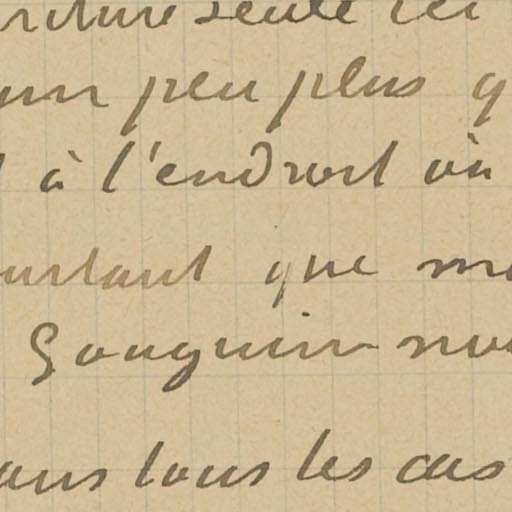 seule ici
un peu plus q
à l'endroit où
ourtant que m
Gauguin nou
ans tous les cas